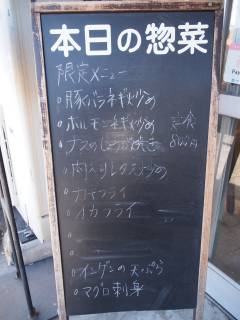 本日の惣菜
限定メニュー
豚バラネギ炒め
ホルモンネギ炒め 定食
ナスのしょうが焼き 800円
肉入り
カキフライ
イカフライ
インゲンの天ぷら
マグロ刺身